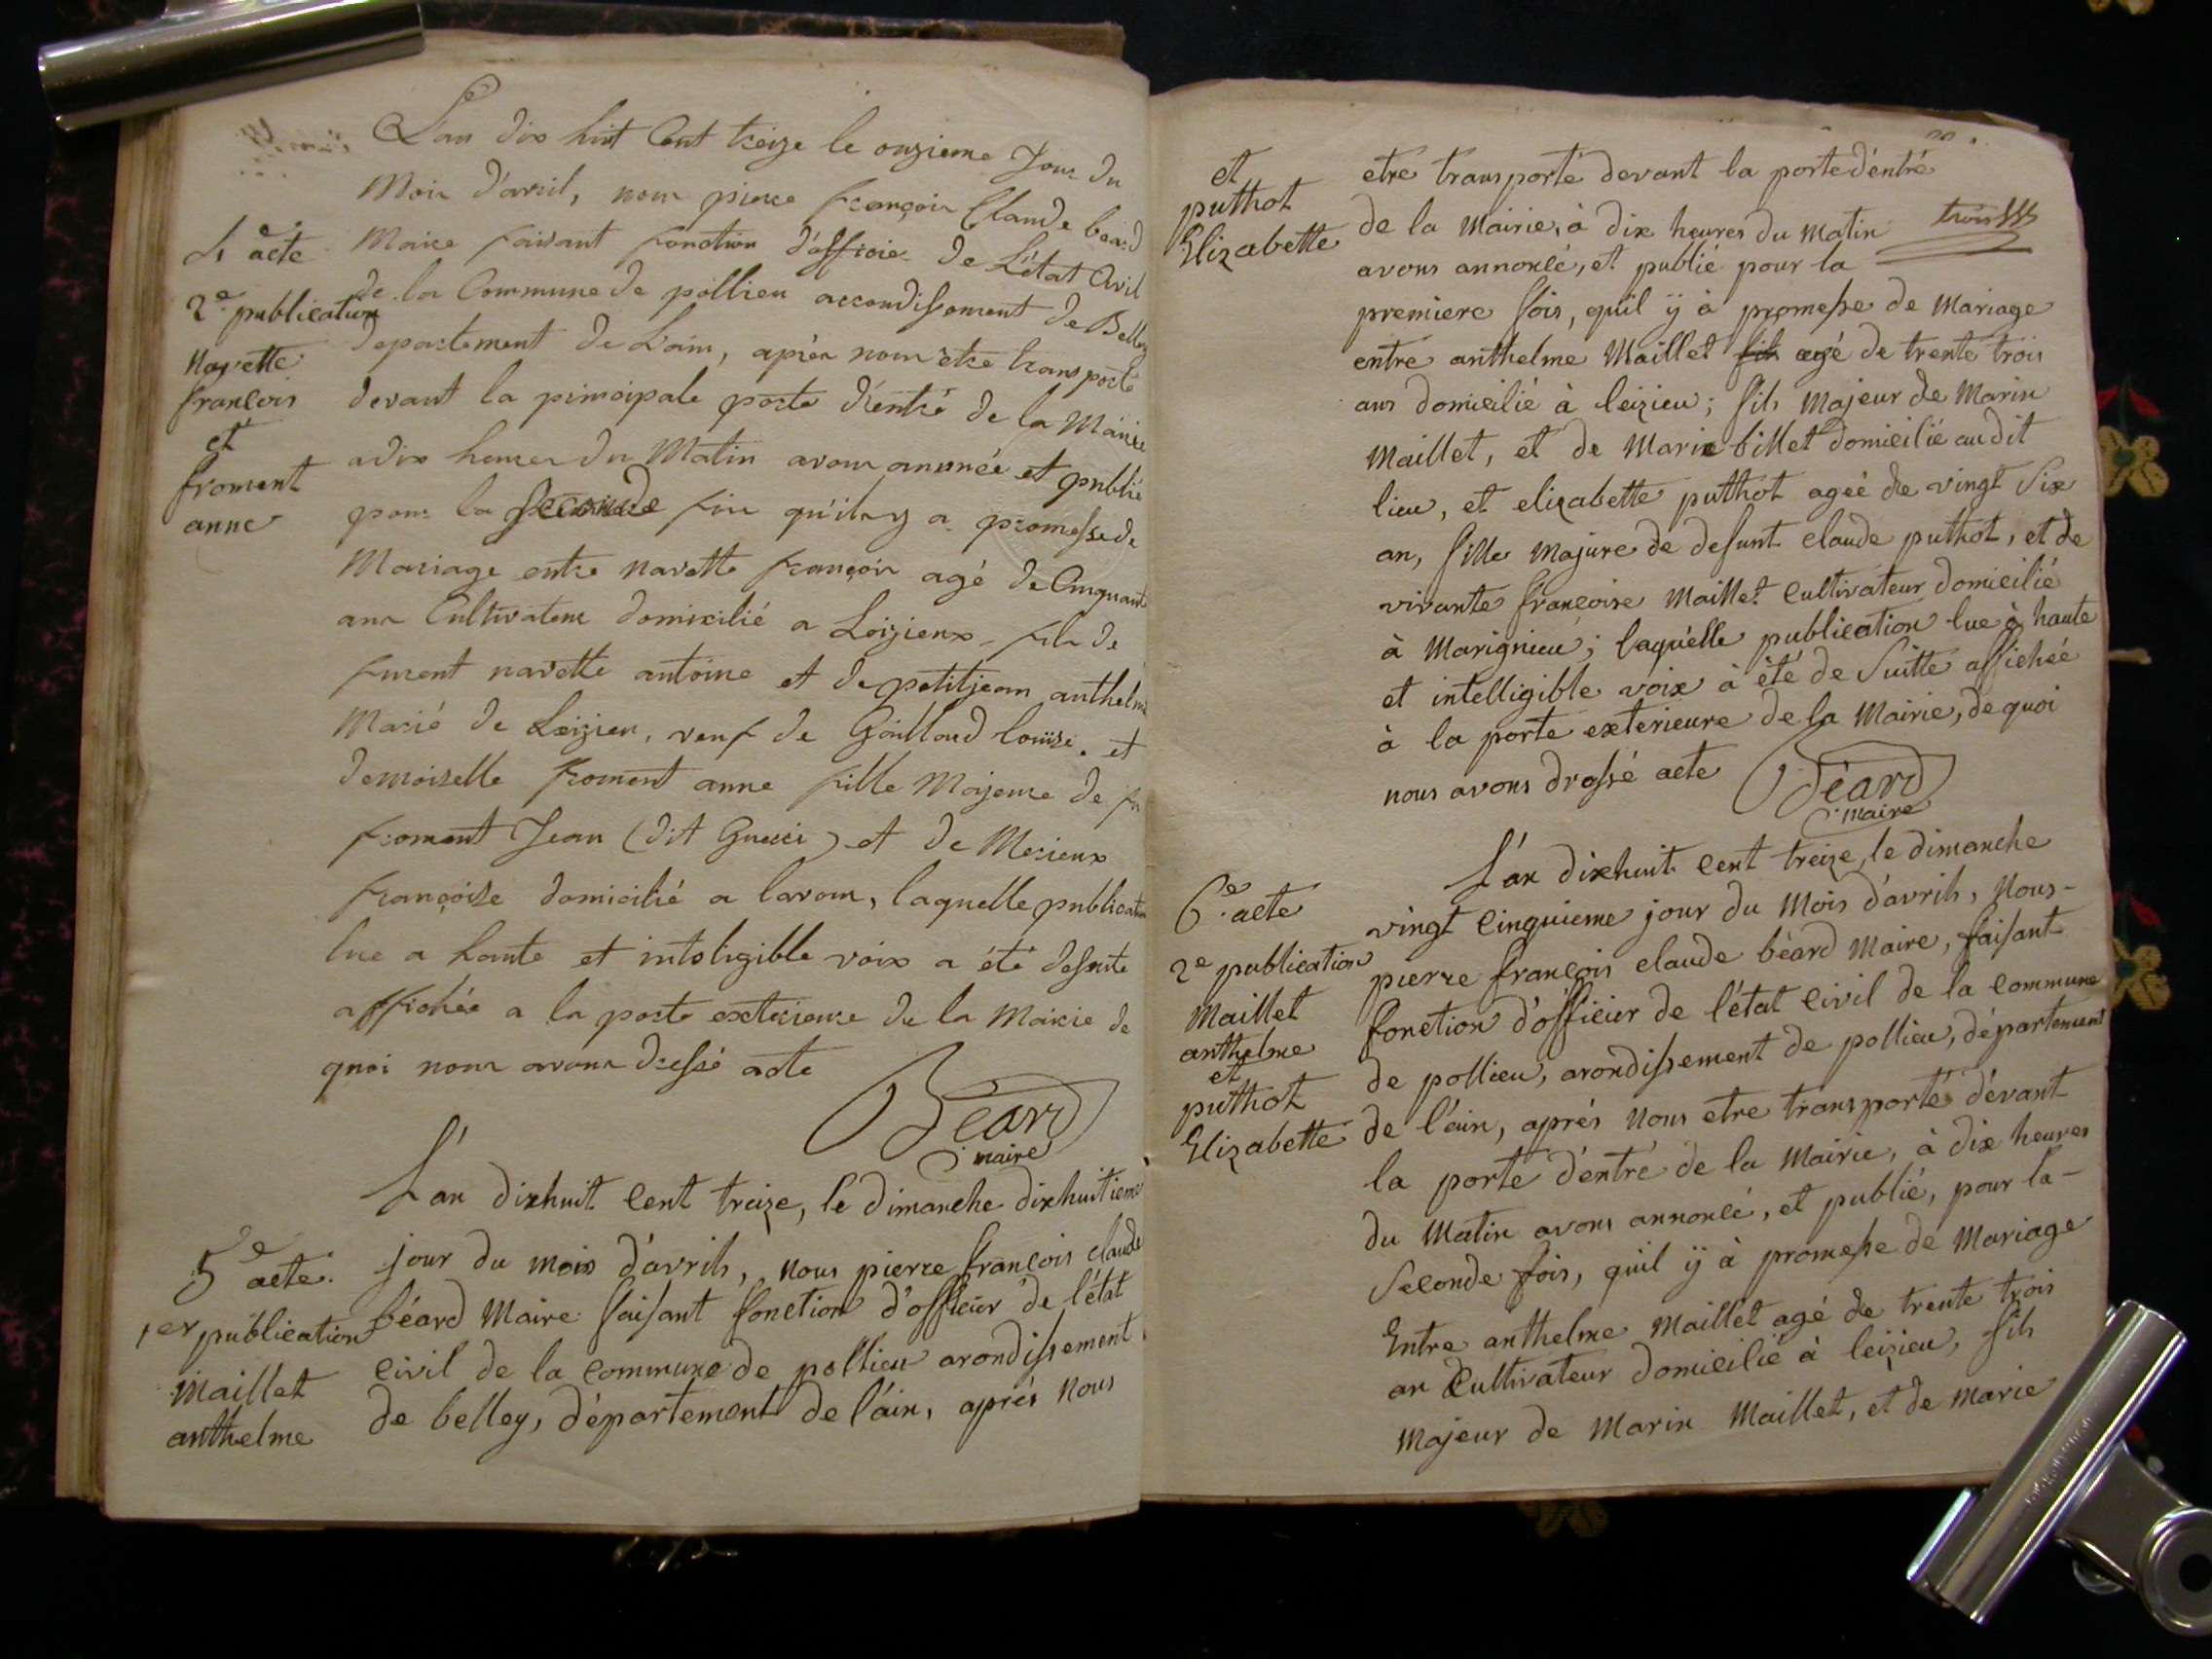 L'an dix huit Cent treize le onzieme Jour du
Mois d'avril, nous pierre françois Claude beard
Maire faisant fonction d'officier de L'état Civil
de la Commune de pollieu arrondissement de Belley
departement de L'ain, après nous etre transporté
devant la principale porte d'entré de la Mairie
a dix heures du Matin avons annoncé et publié
pour la seconde fois qu'il y a promesse de
Mariage entre navette françois agé de Cinquante
ans Cultivateur domicilié a Loizieux fils de
navette antoine et de petitjean anthelme
Marié de Loizieu, veuf de Goilloud louise. et
demoiselle froment anne fille Majeure de fu
froment Jean (dit ) et de Merieux
françoise domicilié a lavour, laquelle publication
lue a haute et inteligible voix a été desuite
affichée a la porte exterieure de la Mairie de
quoi nous avons dressé acte
Béard
maire
4e acte
2e publication
Navette
françois
et
froment
anne
L'an dixhuit cent treize, le dimanche dixhuitieme
jour du mois d'avrils, nous pierre françois claude
béard Maire faisant fonction d'officier de l'état
civil de la commune de pollieu arondissement
de belley, département de l'ain, après nous
5e acte.
1er publication
Maillet
anthelme
et
puthot
Elizabette
etre transporté devant la porte d'éntré
de la Mairie, à dix heures du matin
avons annoncé, et publié pour la
premiere fois, quil ÿ à promesse de Mariage
entre anthelme Maillet fils agé de trente trois
ans domicilié à leizieu; fils majeur de Marin
Maillet, et de Marie billet domicilié au dit
lieu, et elizabette puthot ageé de vingt six
an, fille majure de defunt claude puthot, et de
vivante francoise Maillet Cultivateur domicilié
à Marignieu; laquelle publication lue à haute
et intelligible voix à èté de suitte affichée
à la porte exterieure de la Mairie, de quoi
nous avons drassé acte
Béard
maire
L'an dixhuit cent treize, le dimanche
vingt cinquieme jour du Mois d'avrils, Nous
pierre françois claude bèard Maire, faisant
fonction d'officier de l'état civil de la commune
de pollieu, arondissement de pollieu, département
de l'ain, aprés Nous etre transporté dévant
la porte d'éntré de la Mairie, à dix heures
du Matin avons annoncé, et publié, pour la
Seconde fois, quil ÿ à promesse de Mariage
Entre anthelme Maillet agé de trente trois
an Cultivateur domicilié à leizieu, fils
Majeur de Marin Maillet, et de Marie
6e acte
2e publication
Maillet
anthelme
et
puthot
Elizabette